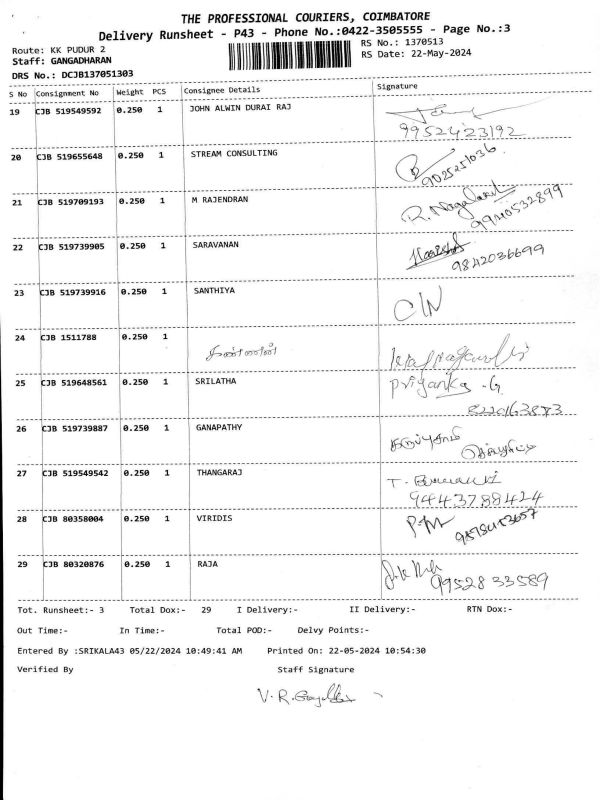 THE PROFESSIONAL COURIERS, COIMBATORE
Delivery Runsheet - P43 - Phone No.:0422-3505555 - Page No.:3
Route: KK PUDUR 2
RS No.: 1370513
Staff: GANGADHARAN
RS Date: 22-May-2024
DRS No.: DCJB137051303
S No Consignment No Weight PCS Consignee Details Signature
19 CJB 519549592 0.250 1 JOHN ALWIN DURAI RAJ
9952423192
20 CJB 519655648 0.250 1 STREAM CONSULTING
9025251036
21 CJB 519709193 0.250 1 M RAJENDRAN
R. Nagalaxmi
9940532899
22 CJB 519739905 0.250 1 SARAVANAN
9842036699
23 CJB 519739916 0.250 1 SANTHIYA
24 CJB 1511788 0.250 1 கண்ணன்
25 CJB 519648561 0.250 1 SRILATHA Priyanka - G
8220163873
26 CJB 519739887 0.250 1 GANAPATHY
27 CJB 519549542 0.250 1 THANGARAJ
9443788424
28 CJB 80358004 0.250 1 VIRIDIS
29 CJB 80320876 0.250 1 RAJA
9952833589
Tot. Runsheet:- 3 Total Dox:- 29 I Delivery:- II Delivery:- RTN Dox:-
Out Time:- In Time:- Total POD:- Delvy Points:-
Entered By :SRIKALA43 05/22/2024 10:49:41 AM Printed On: 22-05-2024 10:54:30
Verified By Staff Signature